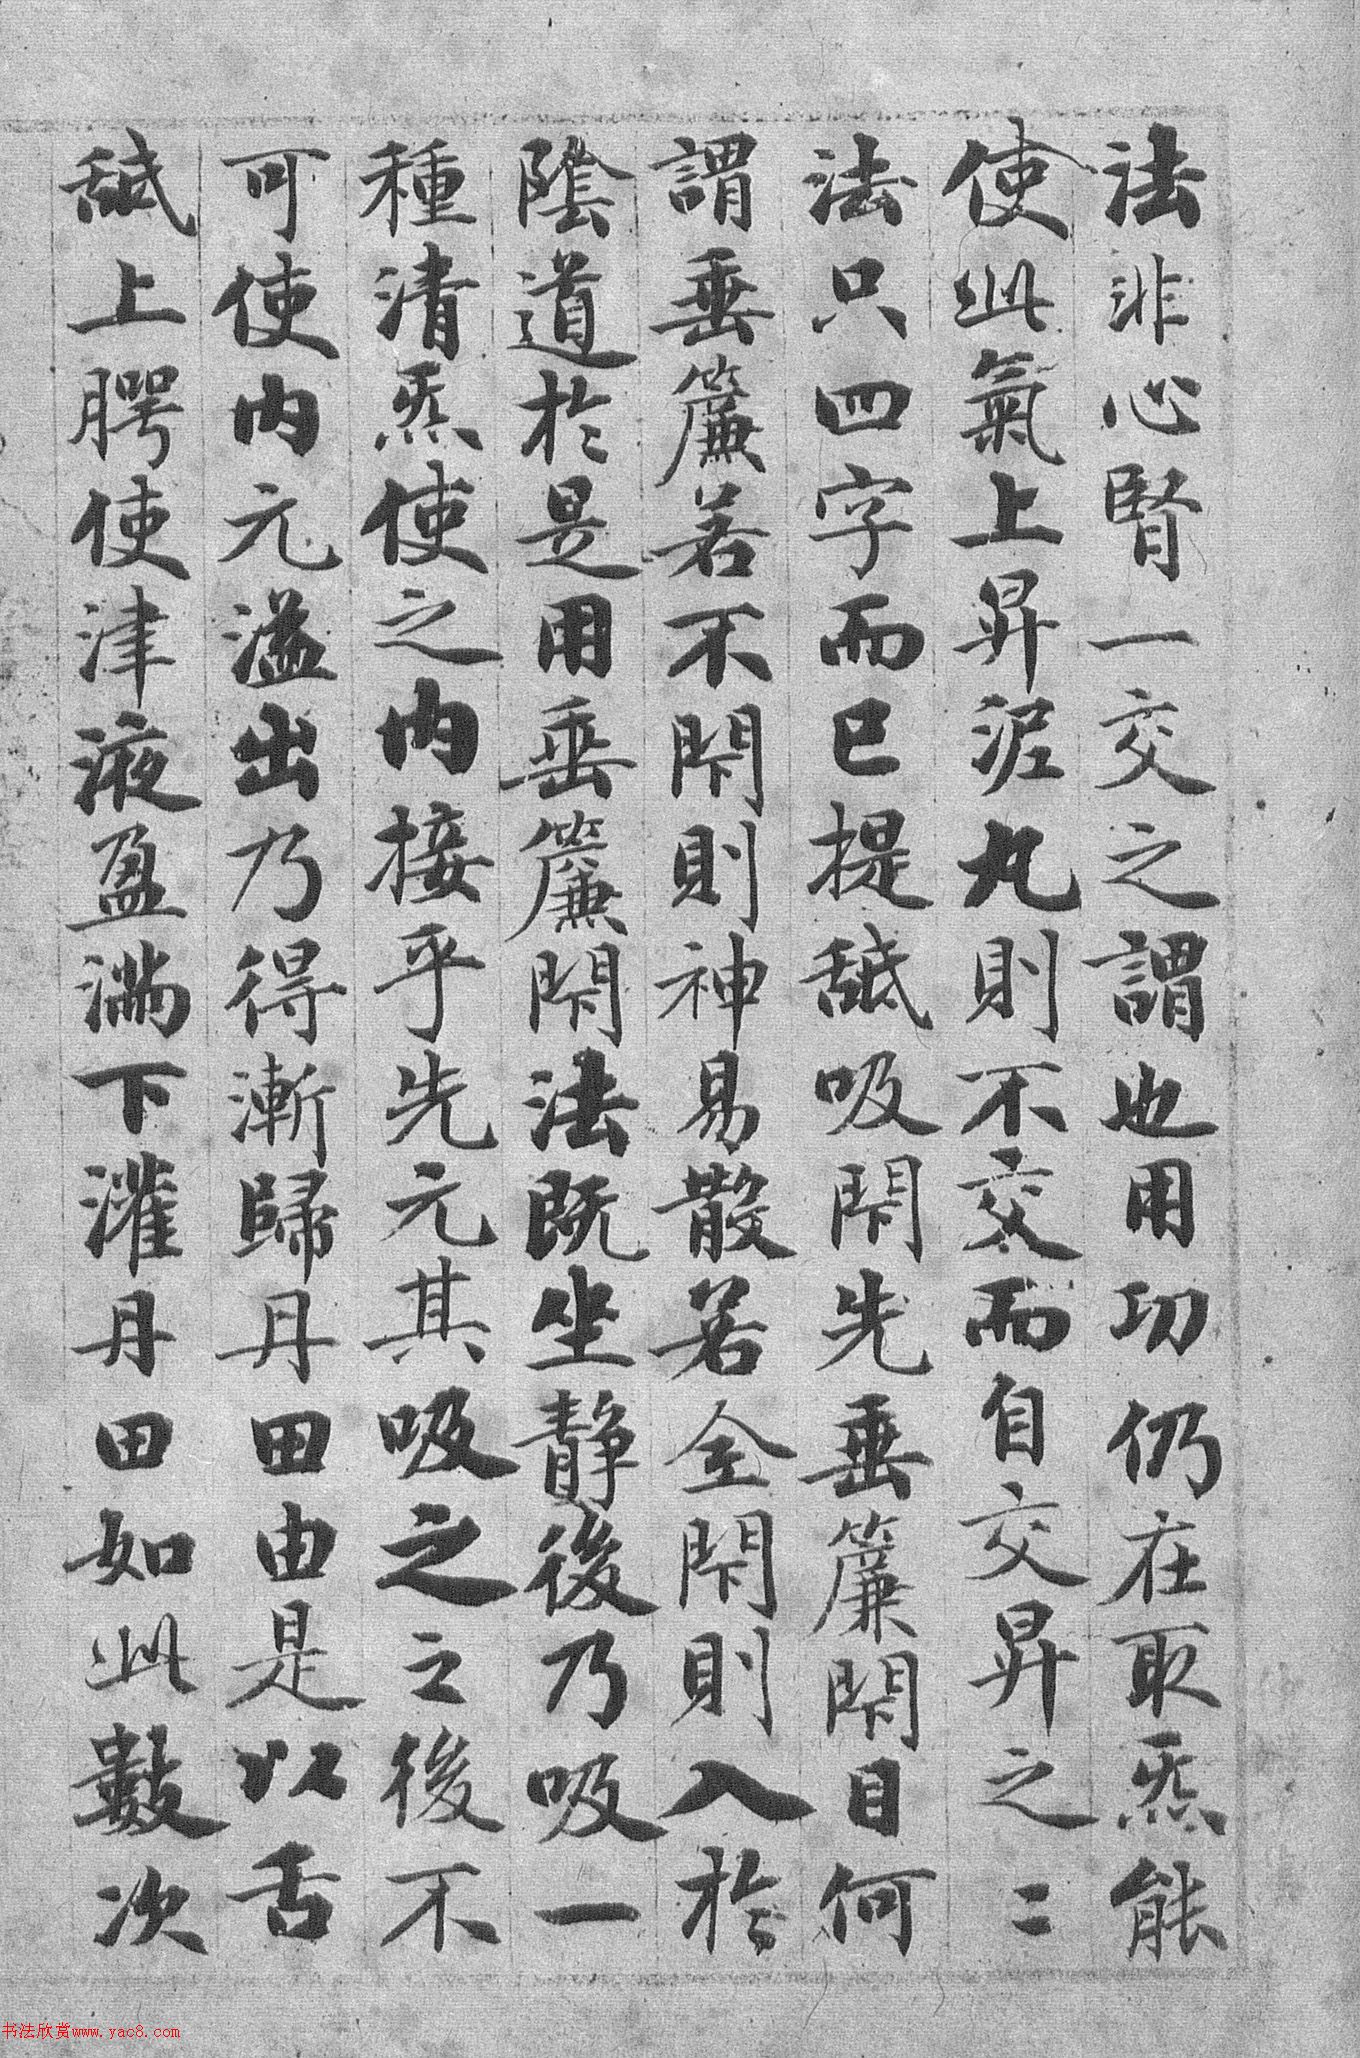 法非心腎一交之謂也用功仍在取炁能
使此氣上昇泥丸則不交而自交昇之二
法只四字而已提舐吸閇先垂簾閇目何
謂垂簾若不閇則神易散若全閇則入於
陰道於是用垂簾閇法既坐静後乃吸一
種清炁使之内接乎先元其吸之之後不
可使内元溢出乃得漸歸丹田由是以舌
舐上腭使津液盈滿下灌丹田如此數次
书法欣赏www.yac8.com